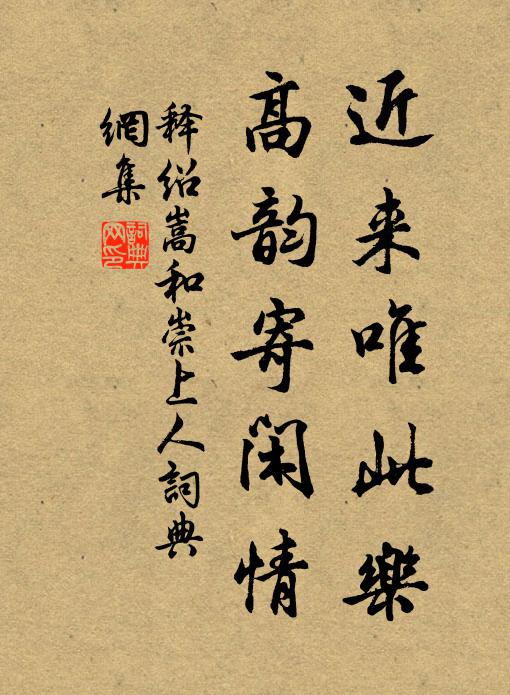 近来唯此樂
高韵寄闲情
释绍嵩和崇上人詞典
網集
詞典网印